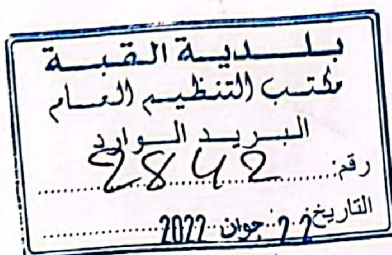 بلدية القبة
مكتب التنظيم العام
البريد الوارد
رقم: 2842
التاريخ: 22 جوان 2022